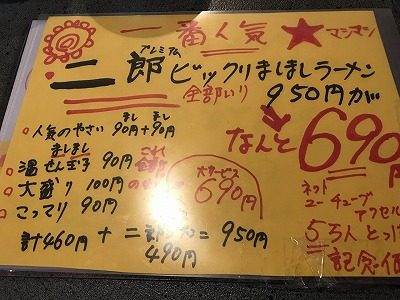 一番人気 ★ マシマシ
プレミアム
二郎ビックリましましラーメン
全部いり 950円が
なんと690円
まし まし
人気のやさい 90円+90円
ましまし
温せん玉子 90円
大盛り 100円
こってり 90円
これ全部
のせ
大サービス
690円
計460円 + 二郎 = 950円
490円
ネット
ユーチューブ
アクセス
55万人とっぱ
記念価